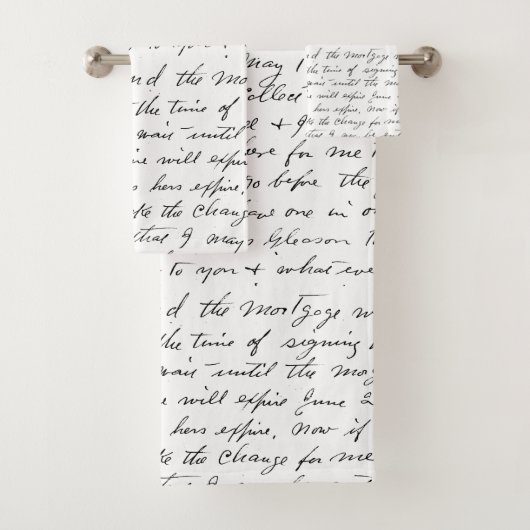 to you +
nd the Mo
the time of
wait until
ine will expire
s hers expire.
ke the Chang
that I may
may
ollec
+ I
ere for me
go before the
ave one in o
Gleason
to you + what eve
d the Mortgage w
the time of signing
wait until the mo
e will expire June 2
hers expire. Now if
ke the Change for me
nd the Mortgage
the time of signing
wait until the m
e will expire June
hers expire. Now if
ke the Change for me
that I may be